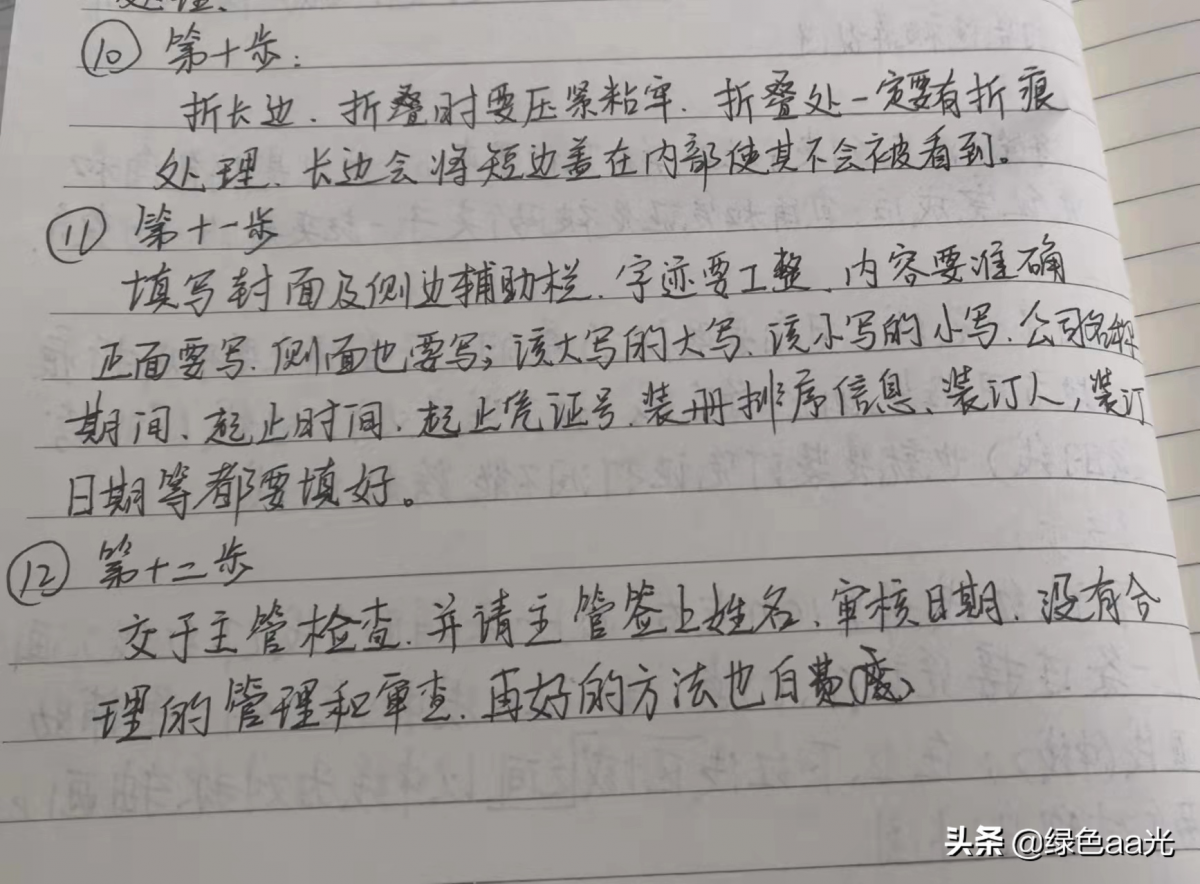 处理、
⑩ 第十步:
折长边、折叠时要压紧粘牢、折叠处一定要有折痕
处理、长边会将短边盖在内部使其不会被看到。
⑪ 第十一步
填写封面及侧边辅助栏、字迹要工整、内容要准确
正面要写、侧面也要写;该大写的大写、该小写的小写、公司名称
期间、起止时间、起止凭证号、装册排序信息、装订人,装订
日期等都要填好。
⑫ 第十二步
交于主管检查、并请主管签上姓名、审核日期、没有合
理的管理和审查、再好的方法也白费(废)
头条 @绿色aa光